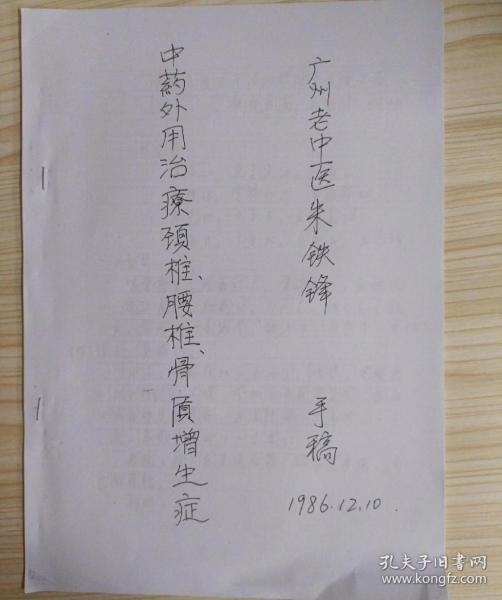 广州老中医朱铁锋 手稿
1986.12.10.
中药外用治療颈椎、腰椎、骨质增生症
孔夫子旧书网
www.kongfz.com